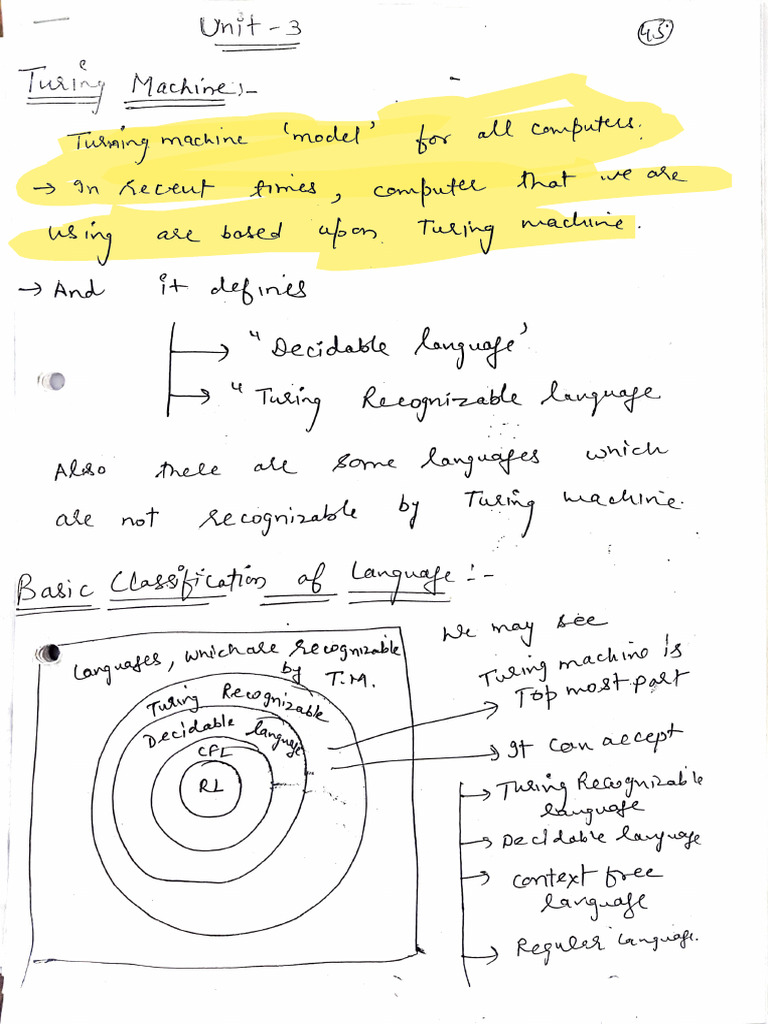 Unit - 3
43
Turing Machine :-
Turning machine 'model' for all computers.
→ In recent times, computer that we are
using are based upon Turing machine.
→ And it defines
→ "Decidable language'
→ "Turing Recognizable language
Also there are some languages which
are not recognizable by Turing machine.
Basic Classification of Language :-
Languages, which are recognizable
by T.M.
Turing Recognizable
Decidable language
CFL
RL
We may see
Turing machine is
Top most part
→ It can accept
→ Turing Recognizable
language
→ Decidable language
→ context free
language
→ Regular language.